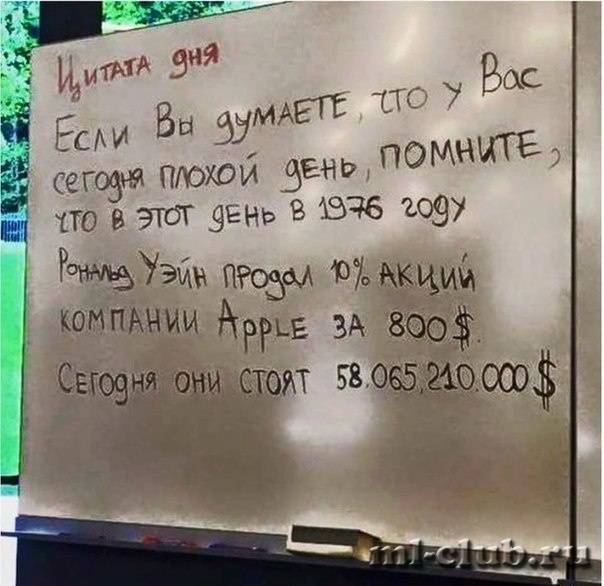 Цитата дня
Если Вы думаете, что у Вас
сегодня плохой день, помните,
что в этот день в 1976 году
Рональд Уэйн продал 10% акций
компании Apple за 800$.
Сегодня они стоят 58.065.210.000$
ml-club.ru